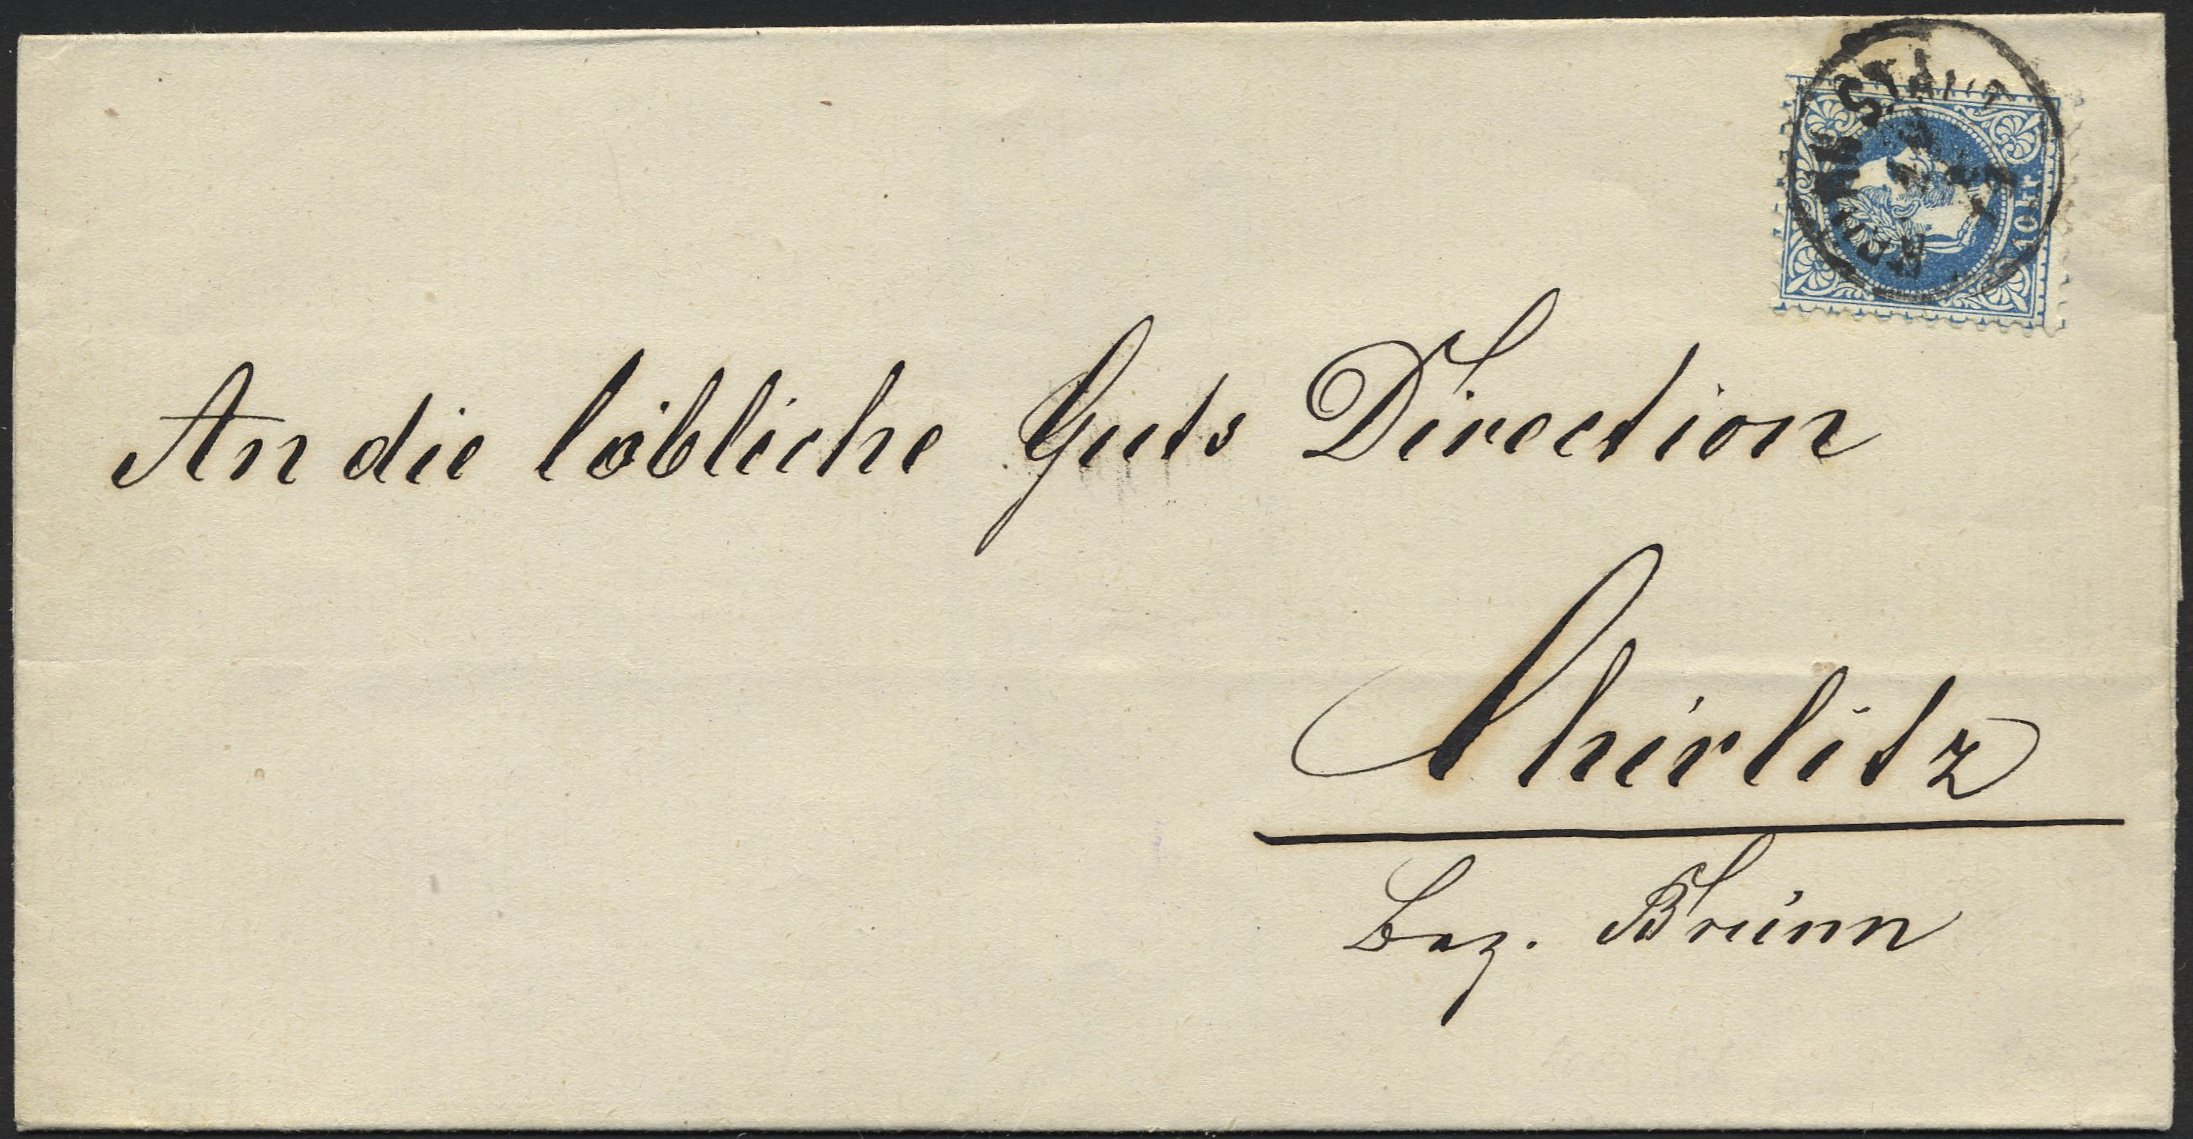 BRÜNN STADT
10 kr.
An die löbliche Guts Direction
Chirlitz
Bez. Brünn